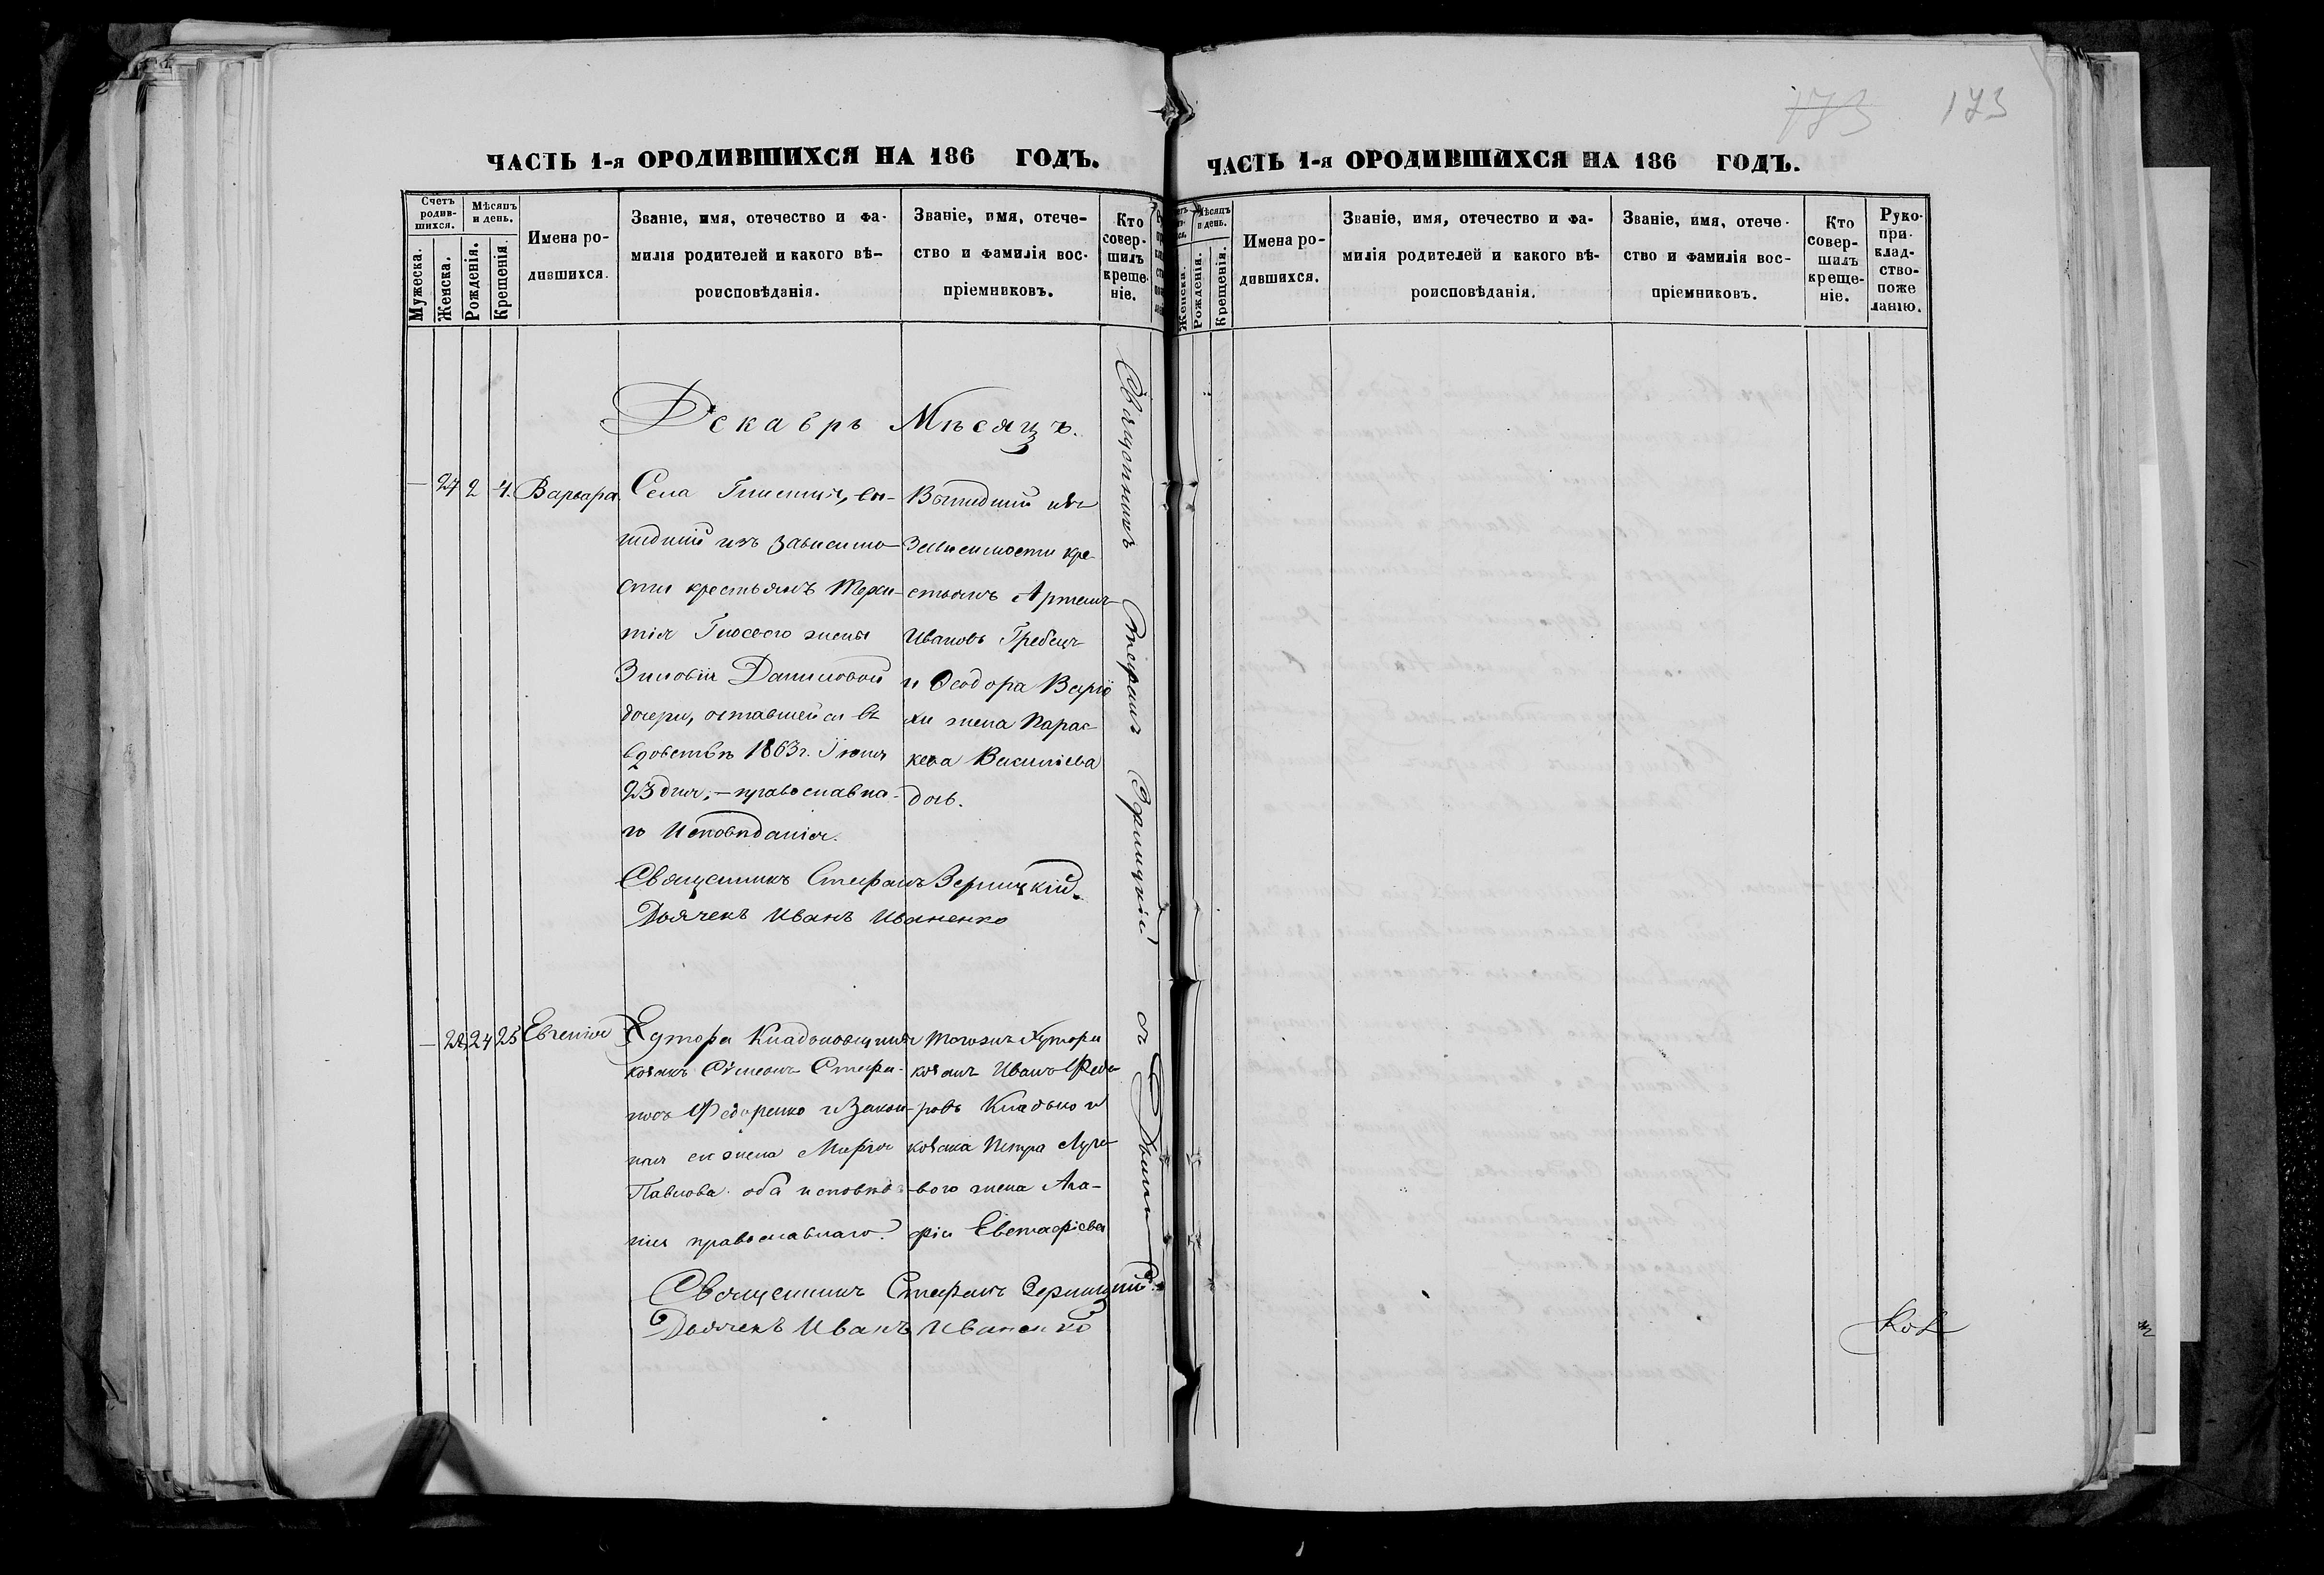 173 173
ЧАСТЬ 1-я ОРОДИВШИХСЯ НА 186 ГОДЪ.
Счетъ родившихся.
Мѣсяцъ и день.
Мужеска.
Женска.
Рожденія.
Крещенія.
Имена родившихся.
Званіе, имя, отечество и фа-
милія родителей и какого вѣ-
роисповѣданія.
Званіе, имя, отече-
ство и фамилія вос-
пріемниковъ.
Кто
совер-
шилъ
креще-
ніе.
Декабрь Мѣсяцъ.
— 27 2 4. Варвара
Села вы-
шедшій изъ зависимо-
сти крестьянъ
жены
Зиновіи Даниловой
дочери, оставшейся въ
вдовствѣ 1863 г. Іюня
23 дня, — православна-
го Исповѣданія.
Вышедшій изъ
Зависимости кре-
стьянъ Артемъ
Ивановъ Гребецъ
и Ѳеодора
жена Парас-
кева Василіева
дочь.
Священникъ Стефанъ Зерницкій.
Дьячекъ Иванъ Иваненко
— 28 24 25 Евгенія
Хутора
козакъ Сѵмеонъ Стефа-
новъ Федоренко и Закон-
ная его жена Марія
Павлова оба исповѣда-
нія православнаго.
Тогожъ Хутора
козакъ Иванъ Федо-
ровъ Кладько и
козака Петра
жена Ага-
фія Евстафіева
Священникъ Стефанъ Зерницкій.
Дьячекъ Иванъ Иваненко
Священникъ Стефанъ Зерницкій съ
ЧАСТЬ 1-я ОРОДИВШИХСЯ НА 186 ГОДЪ.
Мѣсяцъ
и день.
Женска.
Рожденія.
Крещенія.
Имена ро-
дившихся.
Званіе, имя, отечество и фа-
милія родителей и какого вѣ-
роисповѣданія.
Званіе, имя, отече-
ство и фамилія вос-
пріемниковъ.
Кто
совер-
шилъ
креще-
ніе.
Руко-
при-
клад-
ство-
поже
ланію.